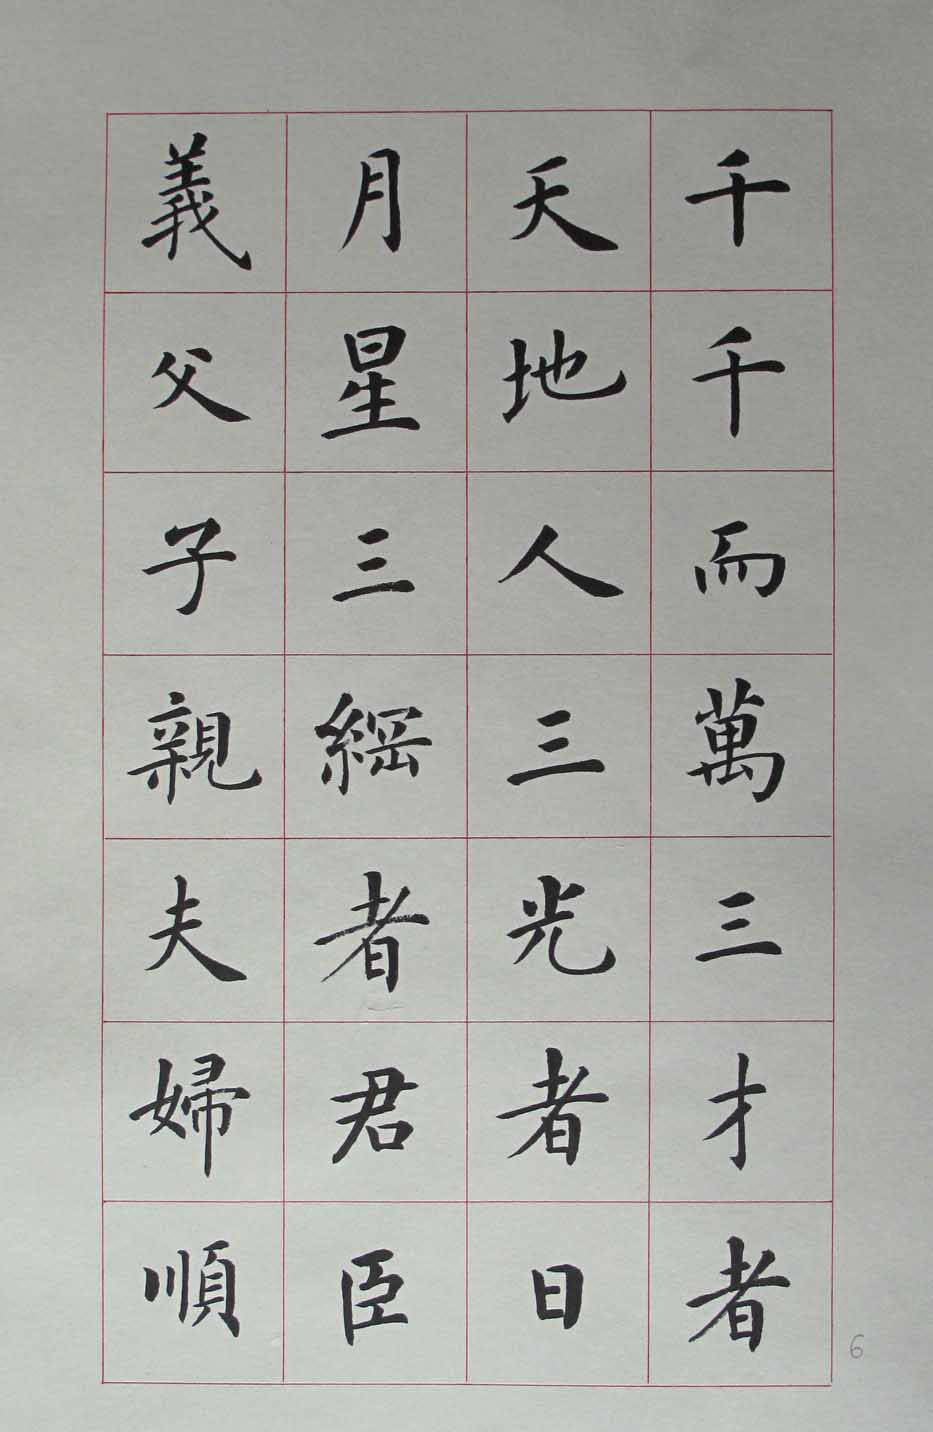 千千而萬三才者
天地人三光者日
月星三綱者君臣
義父子親夫婦順
6